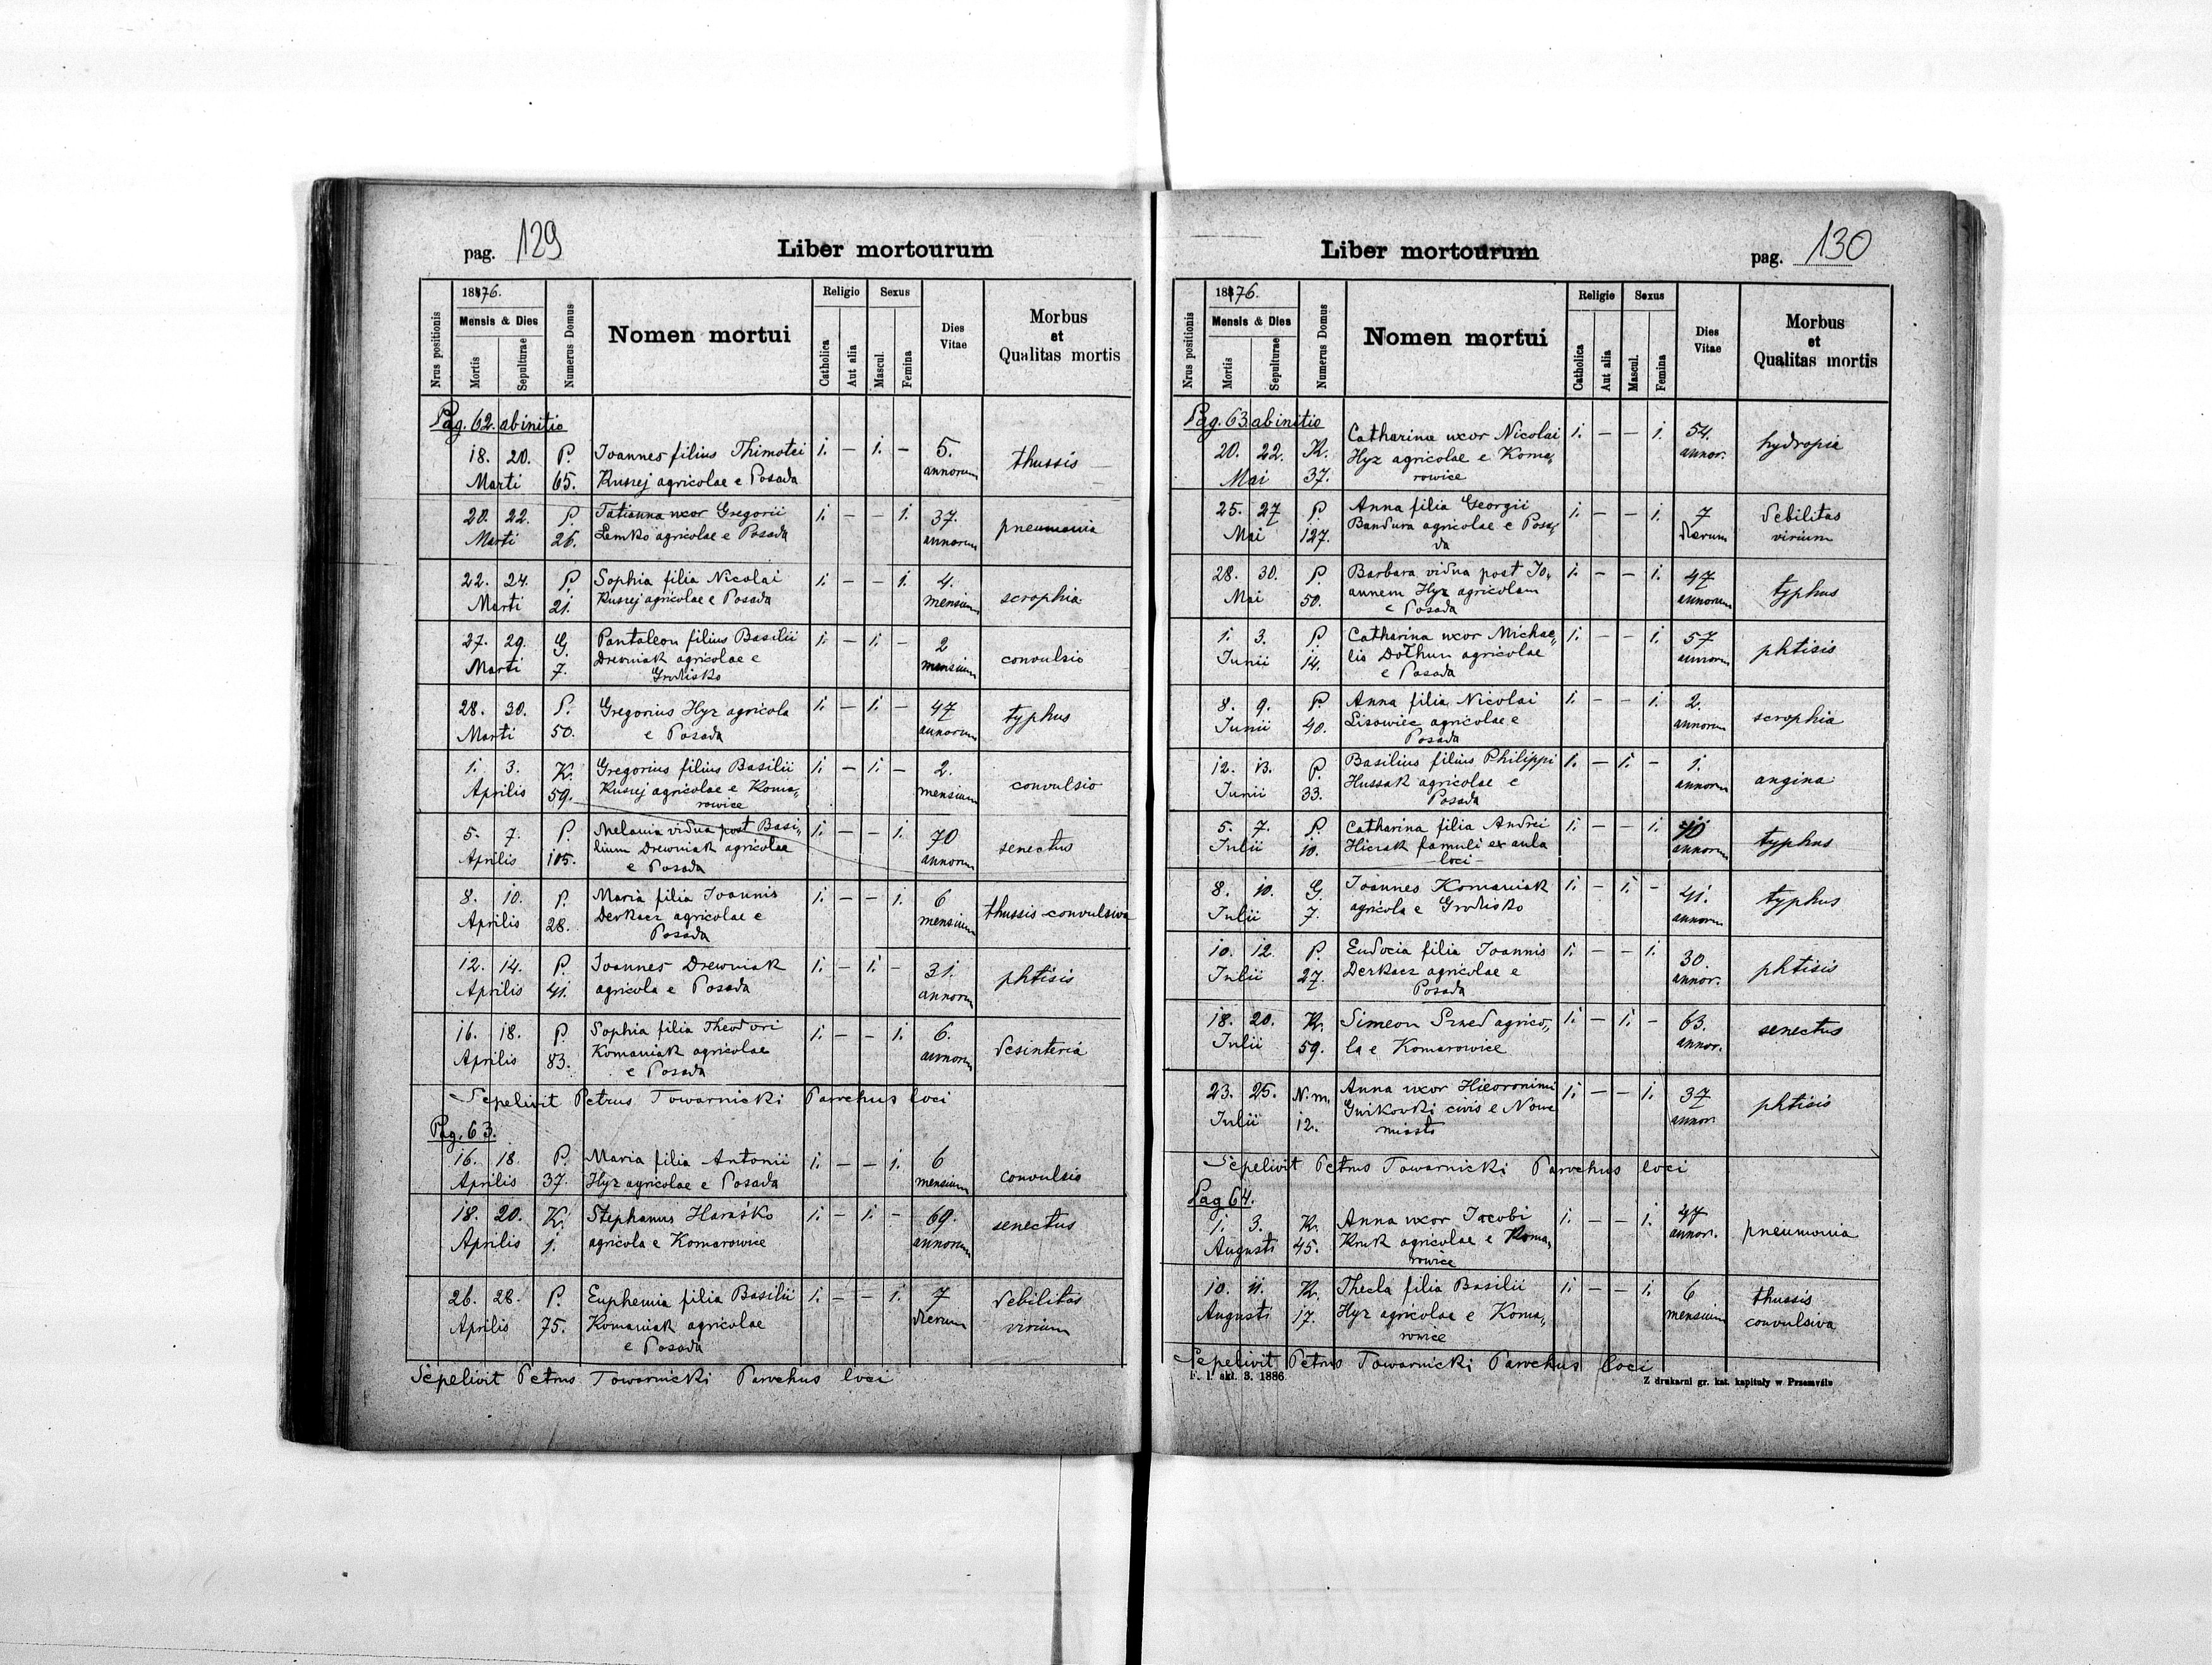 pag. 129
Liber mortourum
1876.
Mensis & Dies
Nrus positionis
Mortis
Sepulturae
Numerus Domus
Nomen mortui
Religio
Catholica
Aut alia
Sexus
Mascul.
Femina
Dies
Vitae
Morbus
et
Qualitas mortis
Pag. 62. ab initio
18. 20. P. Joannes filius Thimotei 1. – 1. – 5. thussis
Marti 65. agricolae e Posada annorum
20. 22. P. Tatianna uxor Gregorii 1. – – 1. 37. pneumonia
Marti 26. Lemko agricolae e Posada annorum
22. 24. P. Sophia filia Nicolai 1. – – 1. 4. scrophia
Marti 21. agricolae e Posada mensium
27. 29. G. Pantaleon filius Basilii 1. – 1. – 2 convulsio
Marti 7. Drewniak agricolae e mensium
Grodisko
28. 30. P. Gregorius Hyz agricola 1. – 1. – 47 typhus
Marti 50. e Posada annorum
1. 3. K. Gregorius filius Basilii 1. – 1. – 2. convulsio
Aprilis 59. agricolae e Koma„ mensium
rowice
5. 7. P. Melania vidua post Basi„ 1. – – 1. 70 senectus
Aprilis 105. lium Drewniak agricolae annorum
e Posada
8. 10. P. Maria filia Joannis 1. – – 1. 6 thussis convulsiva
Aprilis 28. Derkacz agricolae e mensium
Posada
12. 14. P. Joannes Drewniak 1. – 1. – 31. phtisis
Aprilis 41. agricola e Posada annorum
16. 18. P. Sophia filia Theodori 1. – – 1. 6. desinteria
Aprilis 83. Komaniak agricolae annorum
e Posada
Sepelivit Petrus Towarnicki Parochus loci
Pag. 63.
16. 18. P. Maria filia Antonii 1. – – 1. 6 convulsio
Aprilis 37. Hyz agricolae e Posada mensium
18. 20. K. Stephanus Haraśko 1. – 1. – 69. senectus
Aprilis 1. agricola e Komarowice annorum
26. 28. P. Euphemia filia Basilii 1. – – 1. 7 debilitas
Aprilis 75. Komaniak agricolae dierum virium
e Posada
Sepelivit Petrus Towarnicki Parochus loci
Liber mortourum
pag. 130
1876.
Mensis & Dies
Nrus positionis
Mortis
Sepulturae
Numerus Domus
Nomen mortui
Religio
Catholica
Aut alia
Sexus
Mascul.
Femina
Dies
Vitae
Morbus
et
Qualitas mortis
Pag. 63 ab initio
20. 22. K. Catharina uxor Nicolai 1. – – 1. 54. hydropia
Mai 37. Hyz agricolae e Koma„ annor.
rowice
25. 27 P. Anna filia Georgii 1. – – 1. 7 debilitas
Mai 127. Bandura agricolae e Posa„ dierum virium
da
28. 30. P. Barbara vidua post Jo„ 1. – – 1. 47 typhus
Mai 50. annem Hyz agricolam annorum
e Posada
1. 3. P. Catharina uxor Michae„ 1. – – 1. 57 phtisis
Junii 14. lis Dothun agricolae annorum
e Posada
8. 9. P. Anna filia Nicolai 1. – – 1. 2. scrophia
Junii 40. Lisowiec agricolae e annorum
Posada
12. 13. P. Basilius filius Philippi 1. – 1. – 1. angina
Junii 33. Hussak agricolae e annorum
Posada
5. 7. P. Catharina filia Andrei 1. – – 1. typhus
Julii 10. famuli ex aula annorum
loci
8. 10. G. Joannes Komaniak 1. – 1. – 41. typhus
Julii 7. agricola e Grodisko annorum
10. 12. P. Eudocia filia Joannis 1. – – 1. 30. phtisis
Julii 27. Derkacz agricolae e annor.
Posada
18. 20. K. Simeon agrico„ 1. – 1. – 63. senectus
Julii 59. la e Komarowice annor.
23. 25. N. m. Anna uxor Hieronimi 1. – – 1. 37 phtisis
Julii 12. civis e Nowe annor.
miasto
Sepelivit Petrus Towarnicki Parochus loci
Pag 64.
1. 3. K. Anna uxor Jacobi 1. – – 1. 47 pneumonia
Augusti 45. Kruk agricolae e Koma„ annor.
rowice
10. 11. K. Thecla filia Basilii 1. – – 1. 6 thussis
Augusti 17. Hyz agricolae e Koma„ mensium convulsiva
rowice
Sepelivit Petrus Towarnicki Parochus loci
F. l. akt. 3. 1886.
Z drukarni gr. kat. kapituły w Przemyślu